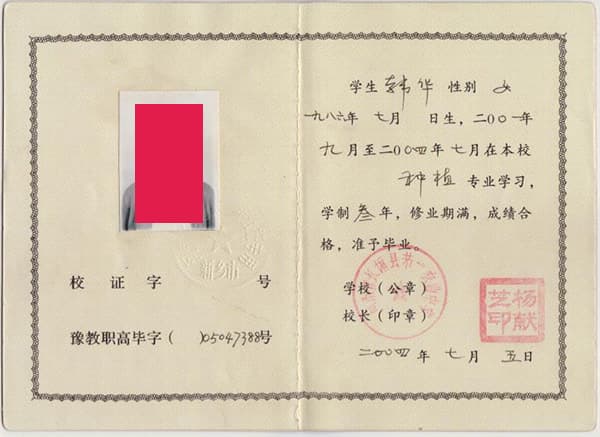 校 证 字 号
豫教职高毕字( )05047388号
学生 韩华 性别 女
一九八六年 七月 日生,二〇〇一年
九月至二〇〇四年七月在本校
种植 专业学习,
学制叁年,修业期满,成绩合
格,准予毕业。
学校(公章)
校长(印章)
杨献
芝印
二〇〇四年 七月 五日